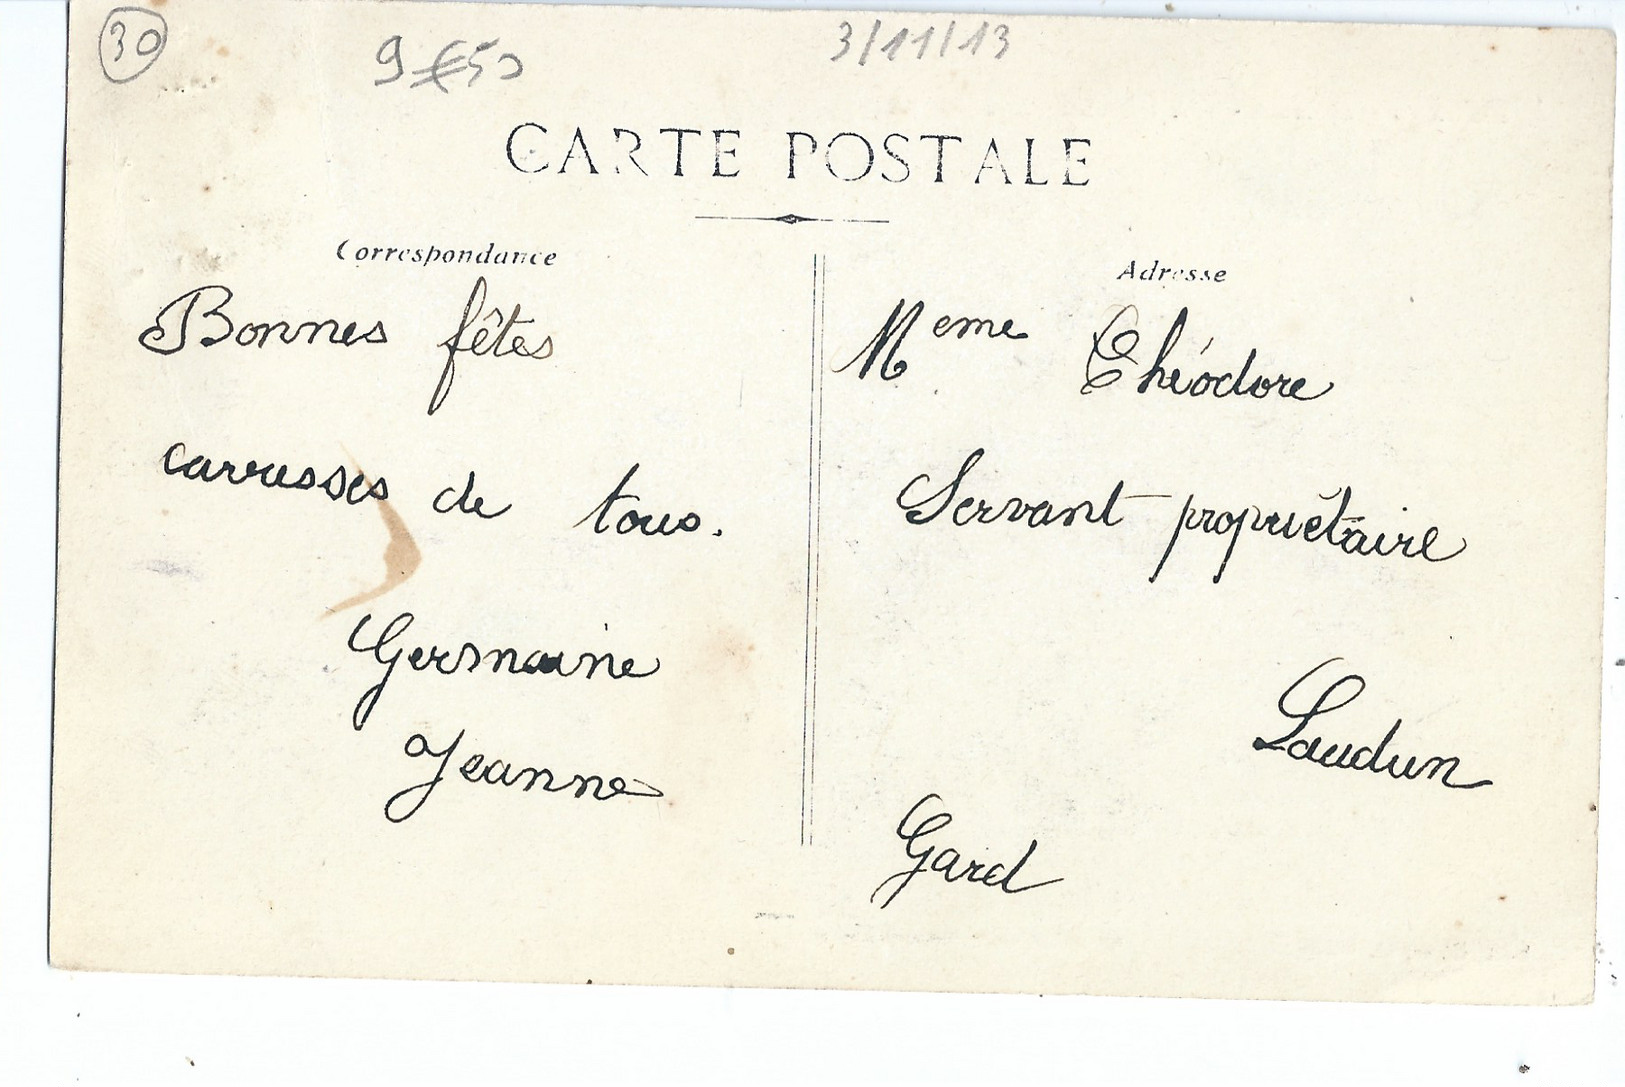 30
9€50
3/11/13
CARTE POSTALE
Correspondance
Bonnes fêtes
carresses de tous.
Germaine
Jeanne
Adresse
Meme Théodore
Servant propriétaire
Laudun
Gard